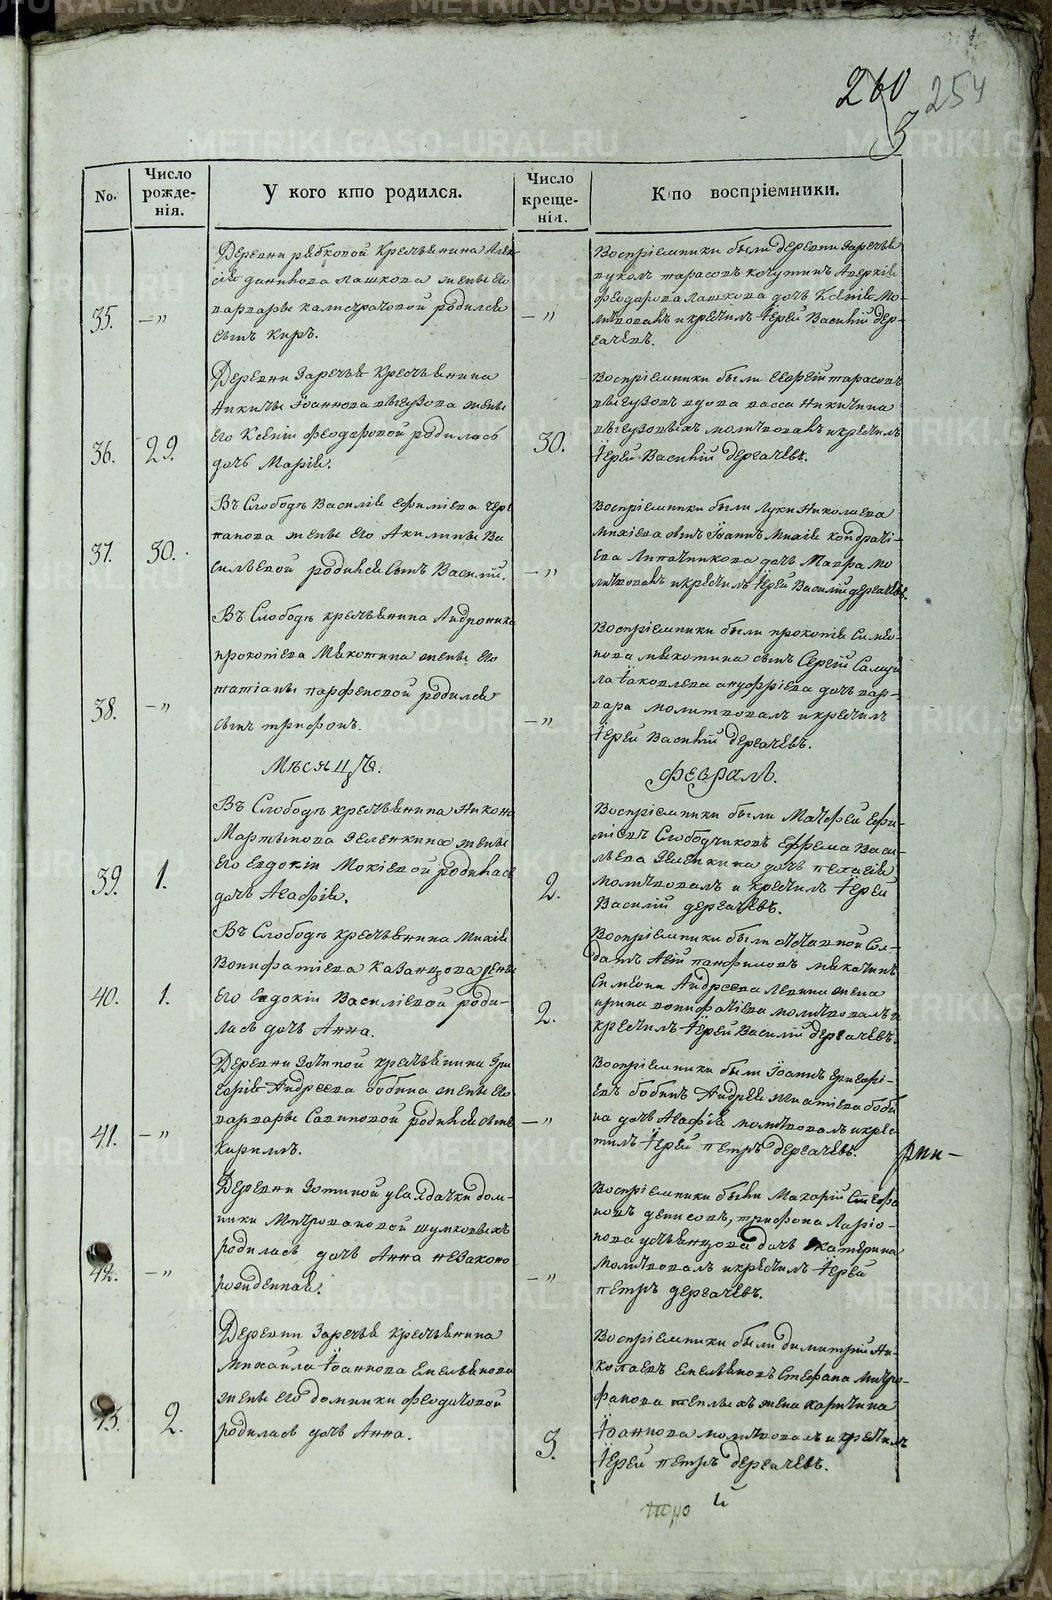 260
254
3
No.
Число рожде-нія.
У кого кто родился.
Число креще-нія.
Кто воспріемники.
35.
— „
Деревни рябковой Крестьянина Алек
сія данилова лашкова жены его
варвары калистратовой родился
сынъ Киръ.
— „
Воспріемники были деревни Заречья
тарасовъ Аверкія
феодорова лашкова дочь Ксенія Мо-
литвовалъ и крестилъ Іерей Василій дер-
гачевъ.
36.
29.
Деревни Заречья Крестьянина
Никиты Іоаннова жены
его Ксеніи феодоровой родилась
дочь Марія.
30.
Воспріемники были Георгій тарасовъ
вдова васса Никитина
молитвовалъ и крестилъ
Іерей Василій дергачевъ.
37.
30.
Въ Слободѣ Василія Ефиміева
жены его Акилины Ва
сильевой родился сынъ Василій.
— „
Воспріемники были Луки Николаева
Михіева сынъ Іоаннъ Михія кондрати-
ева Липатникова дочь Мавра мо
литвовалъ и крестилъ Іерей Василій дергачевъ.
38.
— „
Въ Слободѣ крестьянина Андроника
прокопіева Мякотина жены его
татіаны парфеновой родился
сынъ трифонъ.
— „
Воспріемники были прокопія Симео-
нова мякотина сынъ Сергій Самуи
ла Іаковлева ануфріева дочь вар-
вара молитвовалъ и крестилъ
Іерей Василій дергачевъ.
Мѣсяцъ.
февраль.
39.
1.
Въ Слободѣ крестьянина Никона
Мартынова Зеленкина жены
его Евдокіи Мокіевой родилась
дочь Агафія.
2.
Воспріемники были Матфей Ефи-
міевъ Слободчиковъ Ефрема Васи-
льева Зеленкина дочь пелагія
молитвовалъ и крестилъ Іерей
Василій дергачевъ.
40.
1.
Въ Слободѣ крестьянина Михія
Вонифатіева Казанцова жены
его Евдокіи Василіевой роди-
лась дочь Анна.
2.
Воспріемники были отставной Сол-
датъ панфиловъ мякотинъ
Симеона Андреева Левина жена
ирина вонифатіева молитвовалъ и
крестилъ Іерей Василій дергачевъ.
41.
— „
Деревни Зотиной крестьянина Гри
горія Андреева бобина жены его
варвары Савиновой родился сынъ
Кириллъ.
— „
Воспріемники были Іоаннъ Григорі-
евъ бобинъ Андрея Игнатіева боби
на дочь Агафія молитвовалъ и крес
тилъ Іерей петръ дергачевъ.
42.
— „
Деревни Зотиной у Солдатки дом-
ники Митровановой шумковыхъ
родилась дочь Анна незаконо
рожденная.
— „
Воспріемники были Макарій Стефа
новъ денисовъ, трифона Ларіо-
нова дочь Екатерина
молитвовалъ и крестилъ Іерей
петръ дергачевъ.
43.
2.
Деревни Заречья Крестьянина
Михаила Іоаннова Емельянова
жены его домники феодотовой
родилась дочь Анна.
3.
Воспріемники были димитрій Ни-
колаевъ Емельяновъ Стефана митро-
фанова теплыхъ жена харитина
Іоаннова молитвовалъ и крестилъ
Іерей петръ дергачевъ.